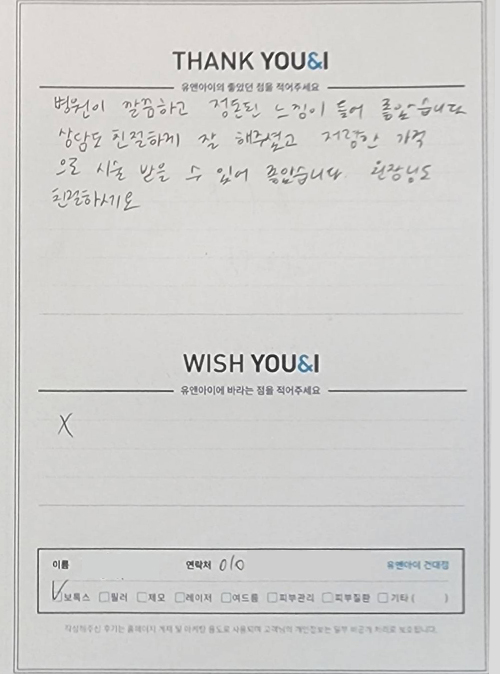 THANK YOU&I
유앤아이의 좋았던 점을 적어주세요
병원이 깔끔하고 정돈된 느낌이 들어 좋았습니다
상담도 친절하게 잘 해주셨고 저렴한 가격
으로 시술 받을 수 있어 좋았습니다. 원장님도
친절하세요
WISH YOU&I
유앤아이에 바라는 점을 적어주세요
X
이름 연락처 010 유앤아이 건대점
보톡스 필러 제모 레이저 여드름 피부관리 피부질환 기타 ( )
작성해주신 후기는 홈페이지 게재 및 마케팅 용도로 사용되며 고객님의 개인정보는 일부 비공개 처리로 보호됩니다.